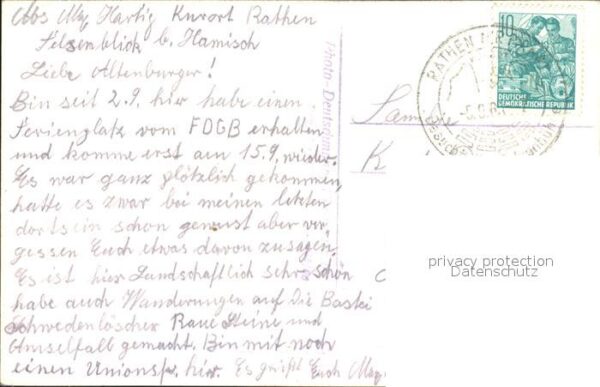 Abs. Mg. Hartig Kurort Rathen
Felsenblick b. Hamisch
Liebe Altenburger!
Bin seit 2.9. hier habe einen
Ferienplatz vom FDGB erhalten
und komme erst am 15.9. wieder.
Es war ganz plötzlich gekommen,
hatte es zwar bei meinen letzten
dortsein schon gewust aber ver-
gessen Euch etwas davon zusagen.
Es ist hier Landschaftlich sehr schön
habe auch Wanderungen auf Die Bastei
Schwedenlöscher Raue Steine und
Amselfall gemacht. Bin mit noch
einen Unionsfr. hier. Es grüßt Euch
10
DEUTSCHE
DEMOKRATISCHE REPUBLIK
RATHEN
Fam
K
privacy protection
Datenschutz